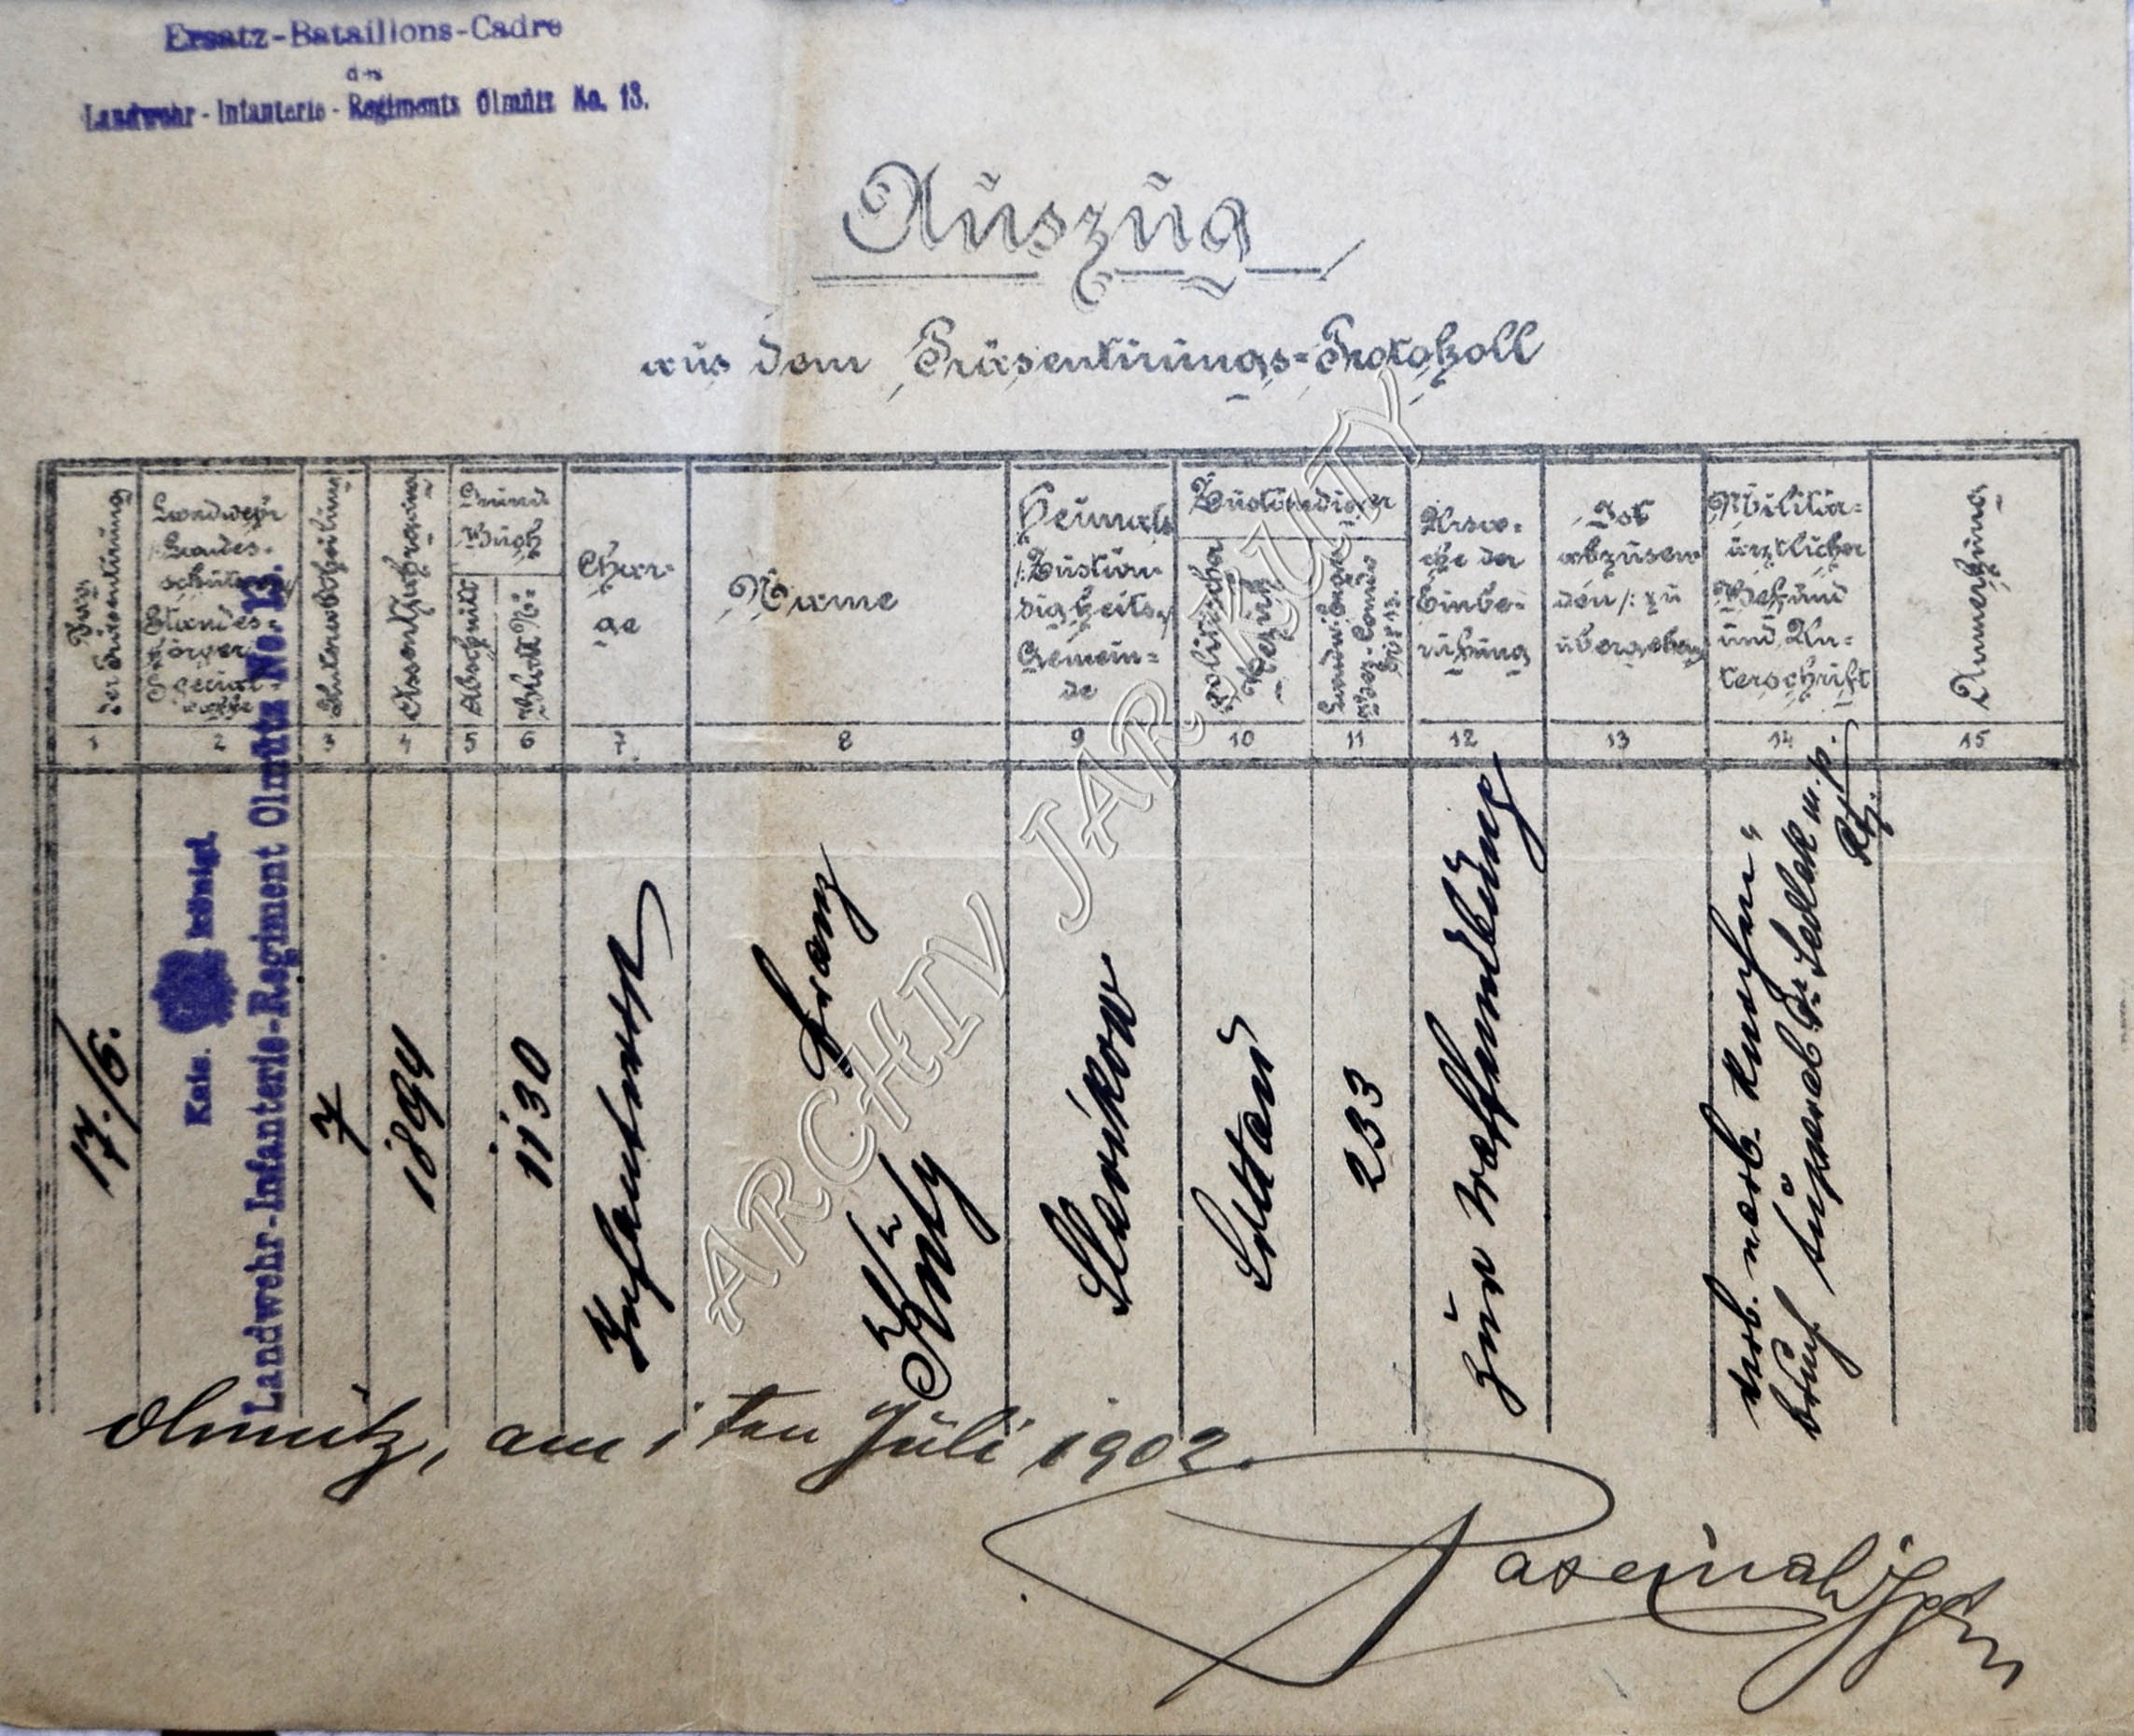 Ersatz-Bataillons-Cadre
des
Landwehr-Infanterie-Regiments Olmütz No. 13.
Auszug
aus dem Präsentirungs-Protokoll
Tag der Präsentirung
Landwehr
Landes-
schützen
Standes-
körper
Special-
waffe
Unterabtheilung
Assentjahrgang
Grund
Buch
Abschnitt
Blatt Nº
Char-
ge
Name
Heimats
/:Zustän-
digkeits:/
Gemein-
de
Zuständiger
politischer
Bezirk
Ursa-
che der
Einbe-
rufung
Ist
abzusen
den /: zu
übergeben
Militär-
ärztlicher
Befund
und Un-
terschrift
Anmerkung
1 2 3 4 5 6 7 8 9 10 11 12 13 14 15
17./6.
Kais. königl.
Landwehr-Infanterie-Regiment Olmütz No. 13.
7
1894
1130
Infanterist
Kuty Franz
Slavikow
Littau
233
zur Waffenübung
Dr. Sedlak m.p.
Olmütz, am 1ten Juli 1902.
ARCHIV JAR KUTY